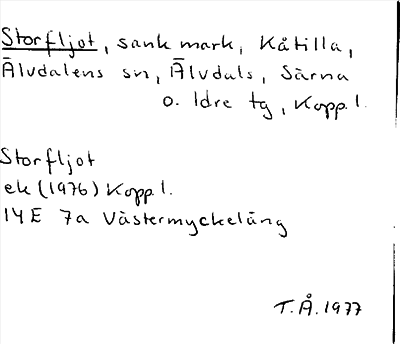 Storfljot, sank mark, Kåtilla,
Älvdalens sn, Älvdals, Särna
o. Idre tg, Kopp.l.
Storfljot
ek (1976) Kopp l.
14E 7a Västermyckeläng
T.Å. 1977